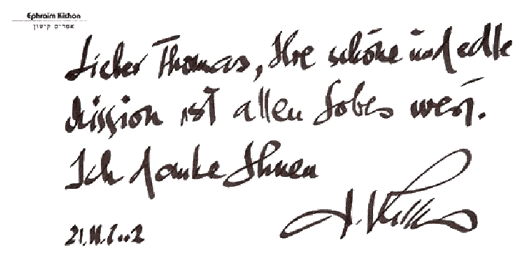 Ephraim Kishon
אפרים קישון
Lieber Thomas, Ihre schöne und edle
Mission ist allen Lobes wert.
Ich danke Ihnen